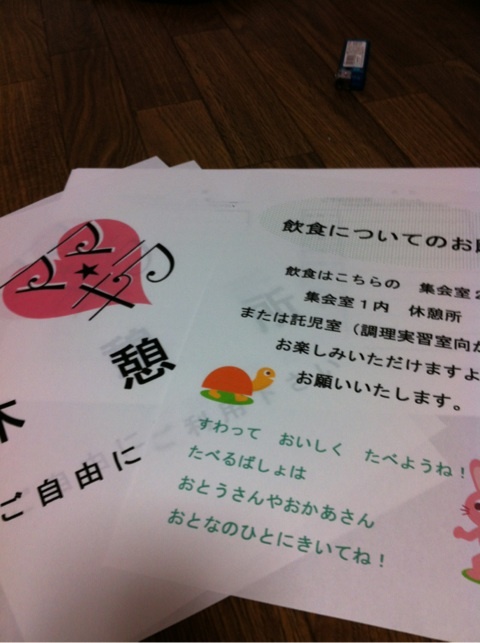 ママ★メラフ
休憩
ご自由に
飲食についてのお
飲食はこちらの 集会室2
集会室1内 休憩所
または託児室(調理実習室向か
お楽しみいただけますよ
お願いいたします。
すわって おいしく たべようね!
たべるばしょは
おとうさんやおかあさん
おとなのひとにきいてね!